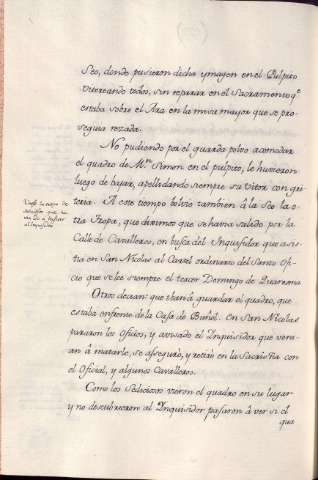 Seo, donde pusieron dicha ymagen en el Pulpito
vitoreando todos, sin reparar en el Sacramento q.e
estaba sobre el Ara en la misa mayor que se pro-
seguia rezada.
No pudiendo por el guarda polvo acomodar
el quadro de M.n Simon en el pulpito, le huvieron
luego de bajar, apellidando siempre su vitor con gri-
teria. A este tiempo bolvió tambien á la Seo la o-
tra tropa, que diximos que se havia salido por la
Calle de Cavalleros, en busca del Inquisidor que asis-
tia en San Nicolas al Cartel ordinario del Santo Ofi-
cio que se lee siempre el tercer Domingo de Quaresma.
Otros decian que ivan á guardar el quadro, que
estaba enfrente de la Casa de Buñol. En San Nicolas
pararon los Oficios, y avisado el Inquisidor que veni-
an á matarle, se aseguró, y retiró en la Sacristia con
el Oficial, y algunos Cavalleros.
Como los Sediciosos vieron el quadro en su lugar
y no descubrieron al Inquisidor pasaron á ver si el
que
al Inquisidor